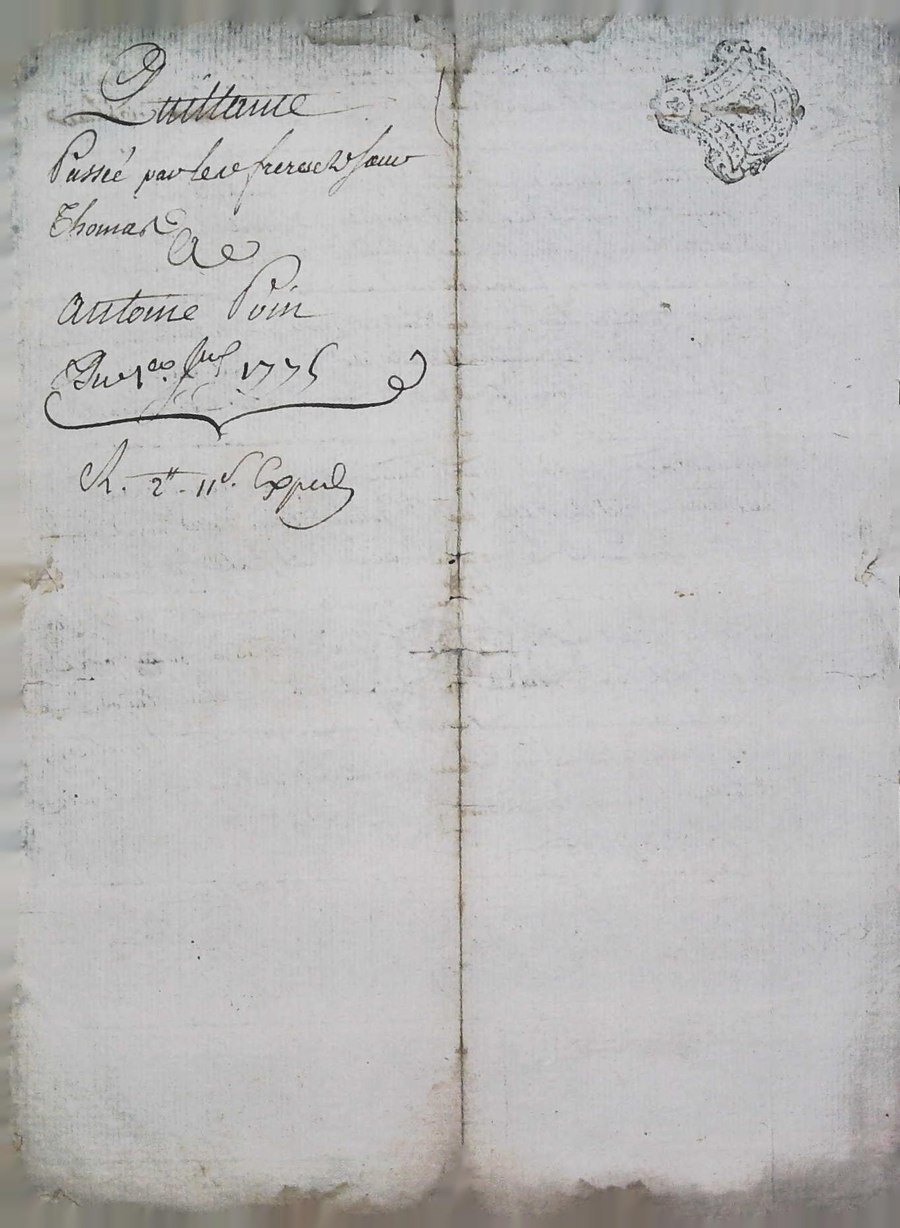 Quittance
Passée par les frères et Sœur
Thomas
A
Antoine Poin
Du 1775
R. 2# 11s. Exped